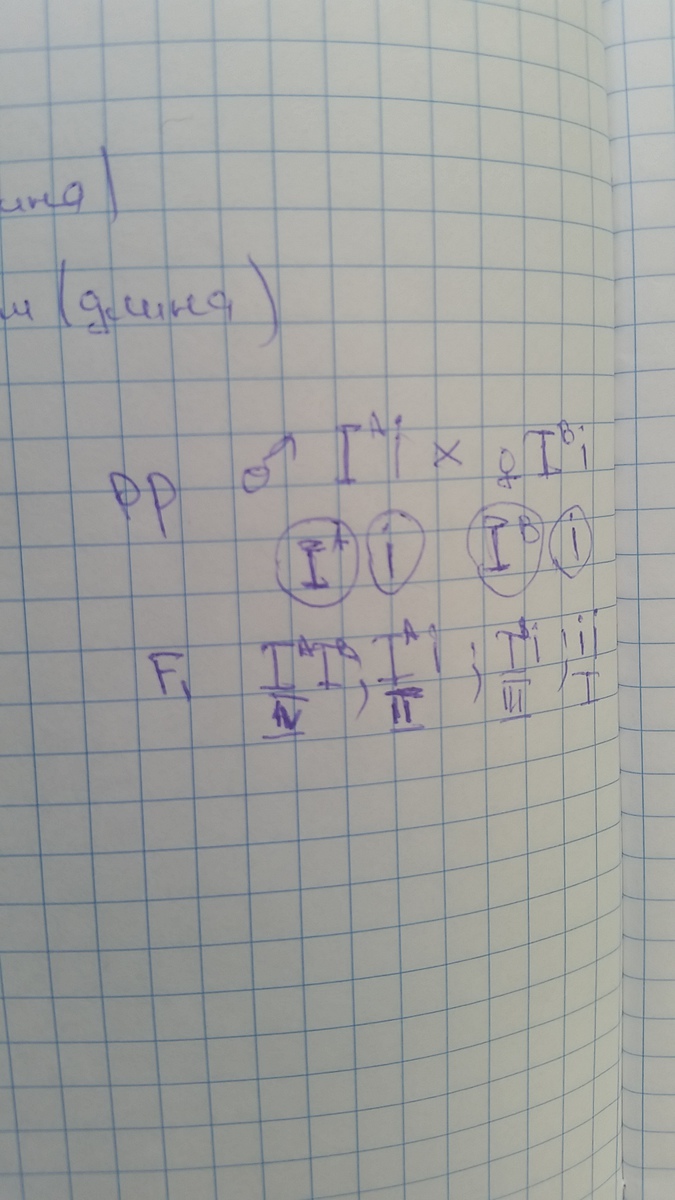 ина)
м (длина)
PP ♂ Iᴬi × ♀ Iᴮi
Iᴬ i Iᴮ i
F₁ IᴬIᴮ; Iᴬi; Iᴮi; ii
IV II III I